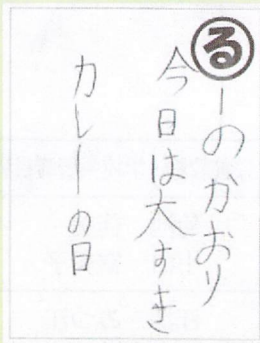 るーのかおり
今日は大すき
カレーの日